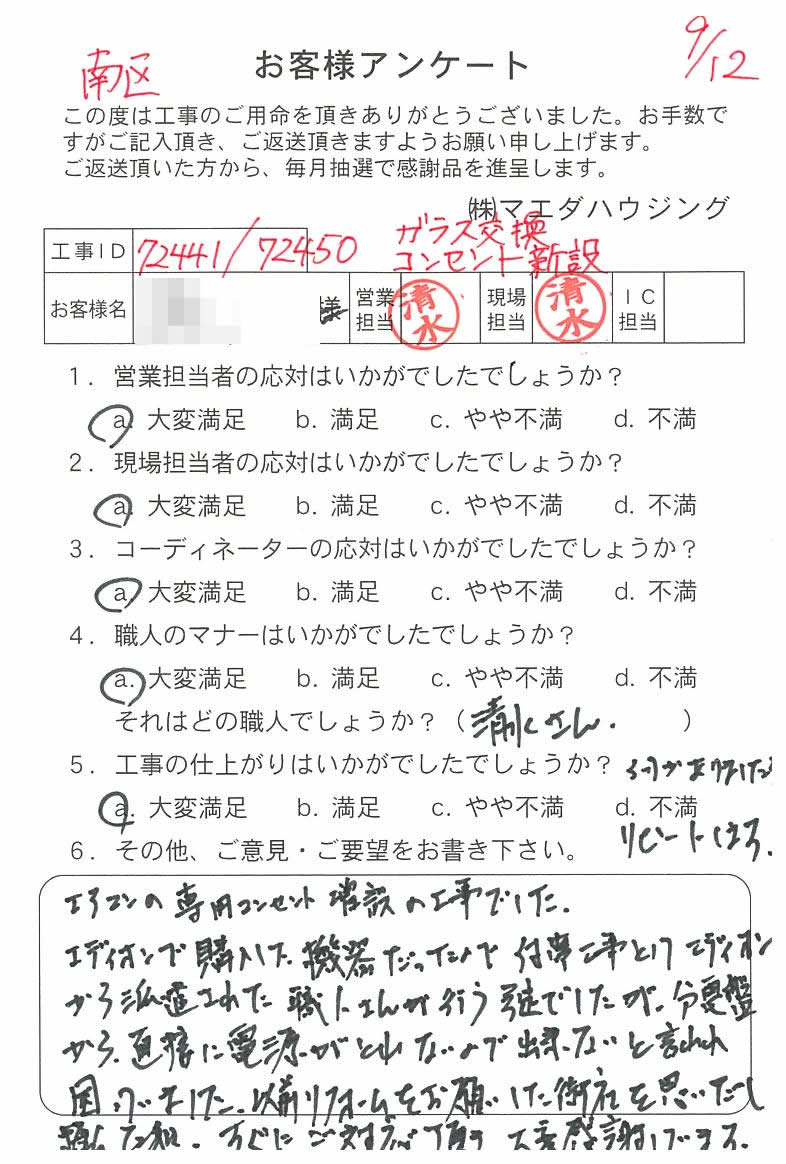 南区
お客様アンケート
9/12
この度は工事のご用命を頂きありがとうございました。お手数で
すがご記入頂き、ご返送頂きますようお願い申し上げます。
ご返送頂いた方から、毎月抽選で感謝品を進呈します。
㈱マエダハウジング
工事ID 72441/72450
ガラス交換
コンセント新設
お客様名 様 営業担当 清水 現場担当 清水 IC担当
1. 営業担当者の応対はいかがでしたでしょうか？
a. 大変満足 b. 満足 c. やや不満 d. 不満
2. 現場担当者の応対はいかがでしたでしょうか？
a. 大変満足 b. 満足 c. やや不満 d. 不満
3. コーディネーターの応対はいかがでしたでしょうか？
a. 大変満足 b. 満足 c. やや不満 d. 不満
4. 職人のマナーはいかがでしたでしょうか？
a. 大変満足 b. 満足 c. やや不満 d. 不満
それはどの職人でしょうか？（清水さん．）
5. 工事の仕上がりはいかがでしたでしょうか？
a. 大変満足 b. 満足 c. やや不満 d. 不満
6. その他、ご意見・ご要望をお書き下さい。
エアコンの専用コンセント増設の工事でした。
エディオンで購入した機器だったので付帯工事としてエディオン
から派遣された職人さんが行う予定でしたが、分電盤
から直接に電源がとれないので出来ないと言われ
困っていました。以前リフォームをお願いした御社を思いだし
すぐにご対応頂き大変感謝しています。